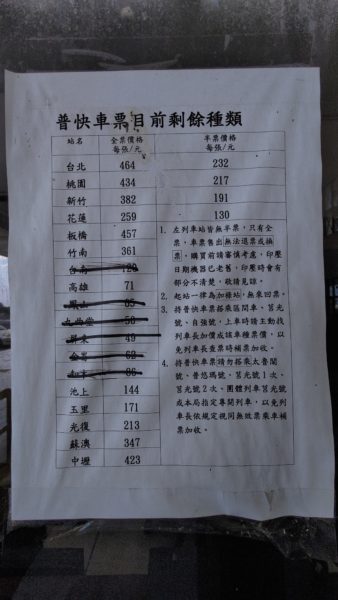 普快車票目前剩餘種類
站名 全票價格 每張/元 半票價格 每張/元
台北 464 232
桃園 434 217
新竹 382 191
花蓮 259 130
板橋 457
竹南 361
台南
高雄 71
鳳山 65
九曲堂 58
屏東 49
金崙 62
知本 86
池上 144
玉里 171
光復 213
蘇澳 347
中壢 423
1. 左列車站皆無半票，只有全
票，車票售出無法退票或換
票，購買前請審慎考慮，印壓
日期機器已老舊，印壓時會有
部分不清楚，敬請見諒。
2. 起站一律為加祿站，無來回票。
3. 持普快車票搭乘區間車、莒光
號、自強號，上車時請主動找
列車長加價成該車種票價，以
免列車長查票時補票加收。
4. 持普快車票請勿搭乘太魯閣
號、普悠瑪號、莒光號1次、
莒光號2次、團體列車莒光號
或本局指定專開列車，以免列
車長依規定視同無效票乘車補
票加收。